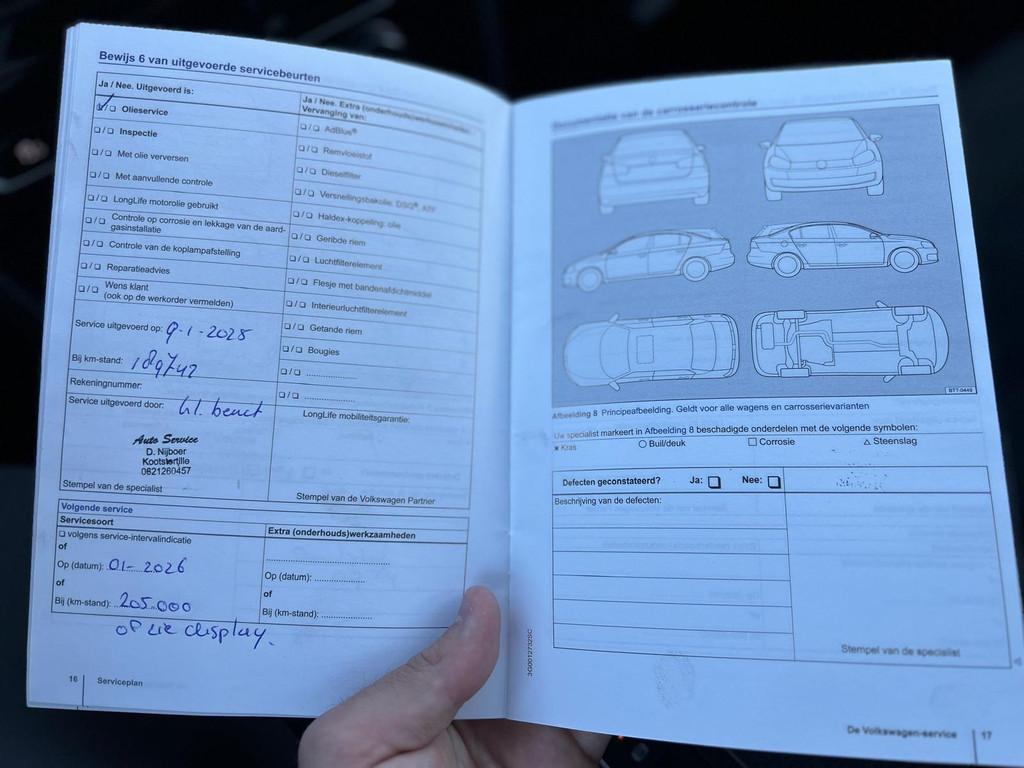 Bewijs 6 van uitgevoerde servicebeurten
Ja / Nee. Uitgevoerd is:
❑/❑ Olieservice
❑/❑ Inspectie
❑/❑ Met olie verversen
❑/❑ Met aanvullende controle
❑/❑ LongLife motorolie gebruikt
❑/❑ Controle op corrosie en lekkage van de aard-
gasinstallatie
❑/❑ Controle van de koplampafstelling
❑/❑ Reparatieadvies
❑/❑ Wens klant
(ook op de werkorder vermelden)
Service uitgevoerd op: 9-1-2025
Bij km-stand: 189742
Rekeningnummer:
Service uitgevoerd door:
Auto Service
D. Nijboer
Kootstertille
0621260457
Stempel van de specialist
Ja / Nee. Extra (onderhouds)werkzaamheden.
Vervanging van:
❑/❑ AdBlue®
❑/❑ Remvloeistof
❑/❑ Dieselfilter
❑/❑ Versnellingsbakolie: DSG®, ATF
❑/❑ Haldex-koppeling: olie
❑/❑ Geribde riem
❑/❑ Luchtfilterelement
❑/❑ Flesje met bandenafdichtmiddel
❑/❑ Interieurluchtfilterelement
❑/❑ Getande riem
❑/❑ Bougies
❑/❑ ....................
❑/❑ ....................
LongLife mobiliteitsgarantie:
Stempel van de Volkswagen Partner
Volgende service
Servicesoort
❑ volgens service-intervalindicatie
of
Op (datum): 01-2026
of
Bij (km-stand): 205.000
of zie display.
Extra (onderhouds)werkzaamheden
Op (datum): ....................
of
Bij (km-stand): ....................
16 Serviceplan
Documentatie van de carrosseriecontrole
BTT-0449
Afbeelding 8 Principeafbeelding. Geldt voor alle wagens en carrosserievarianten
Uw specialist markeert in Afbeelding 8 beschadigde onderdelen met de volgende symbolen:
× Kras ○ Buil/deuk □ Corrosie △ Steenslag
Defecten geconstateerd? Ja: ❑ Nee: ❑
Beschrijving van de defecten:
Stempel van de specialist
3G0012732SC
De Volkswagen-service 17